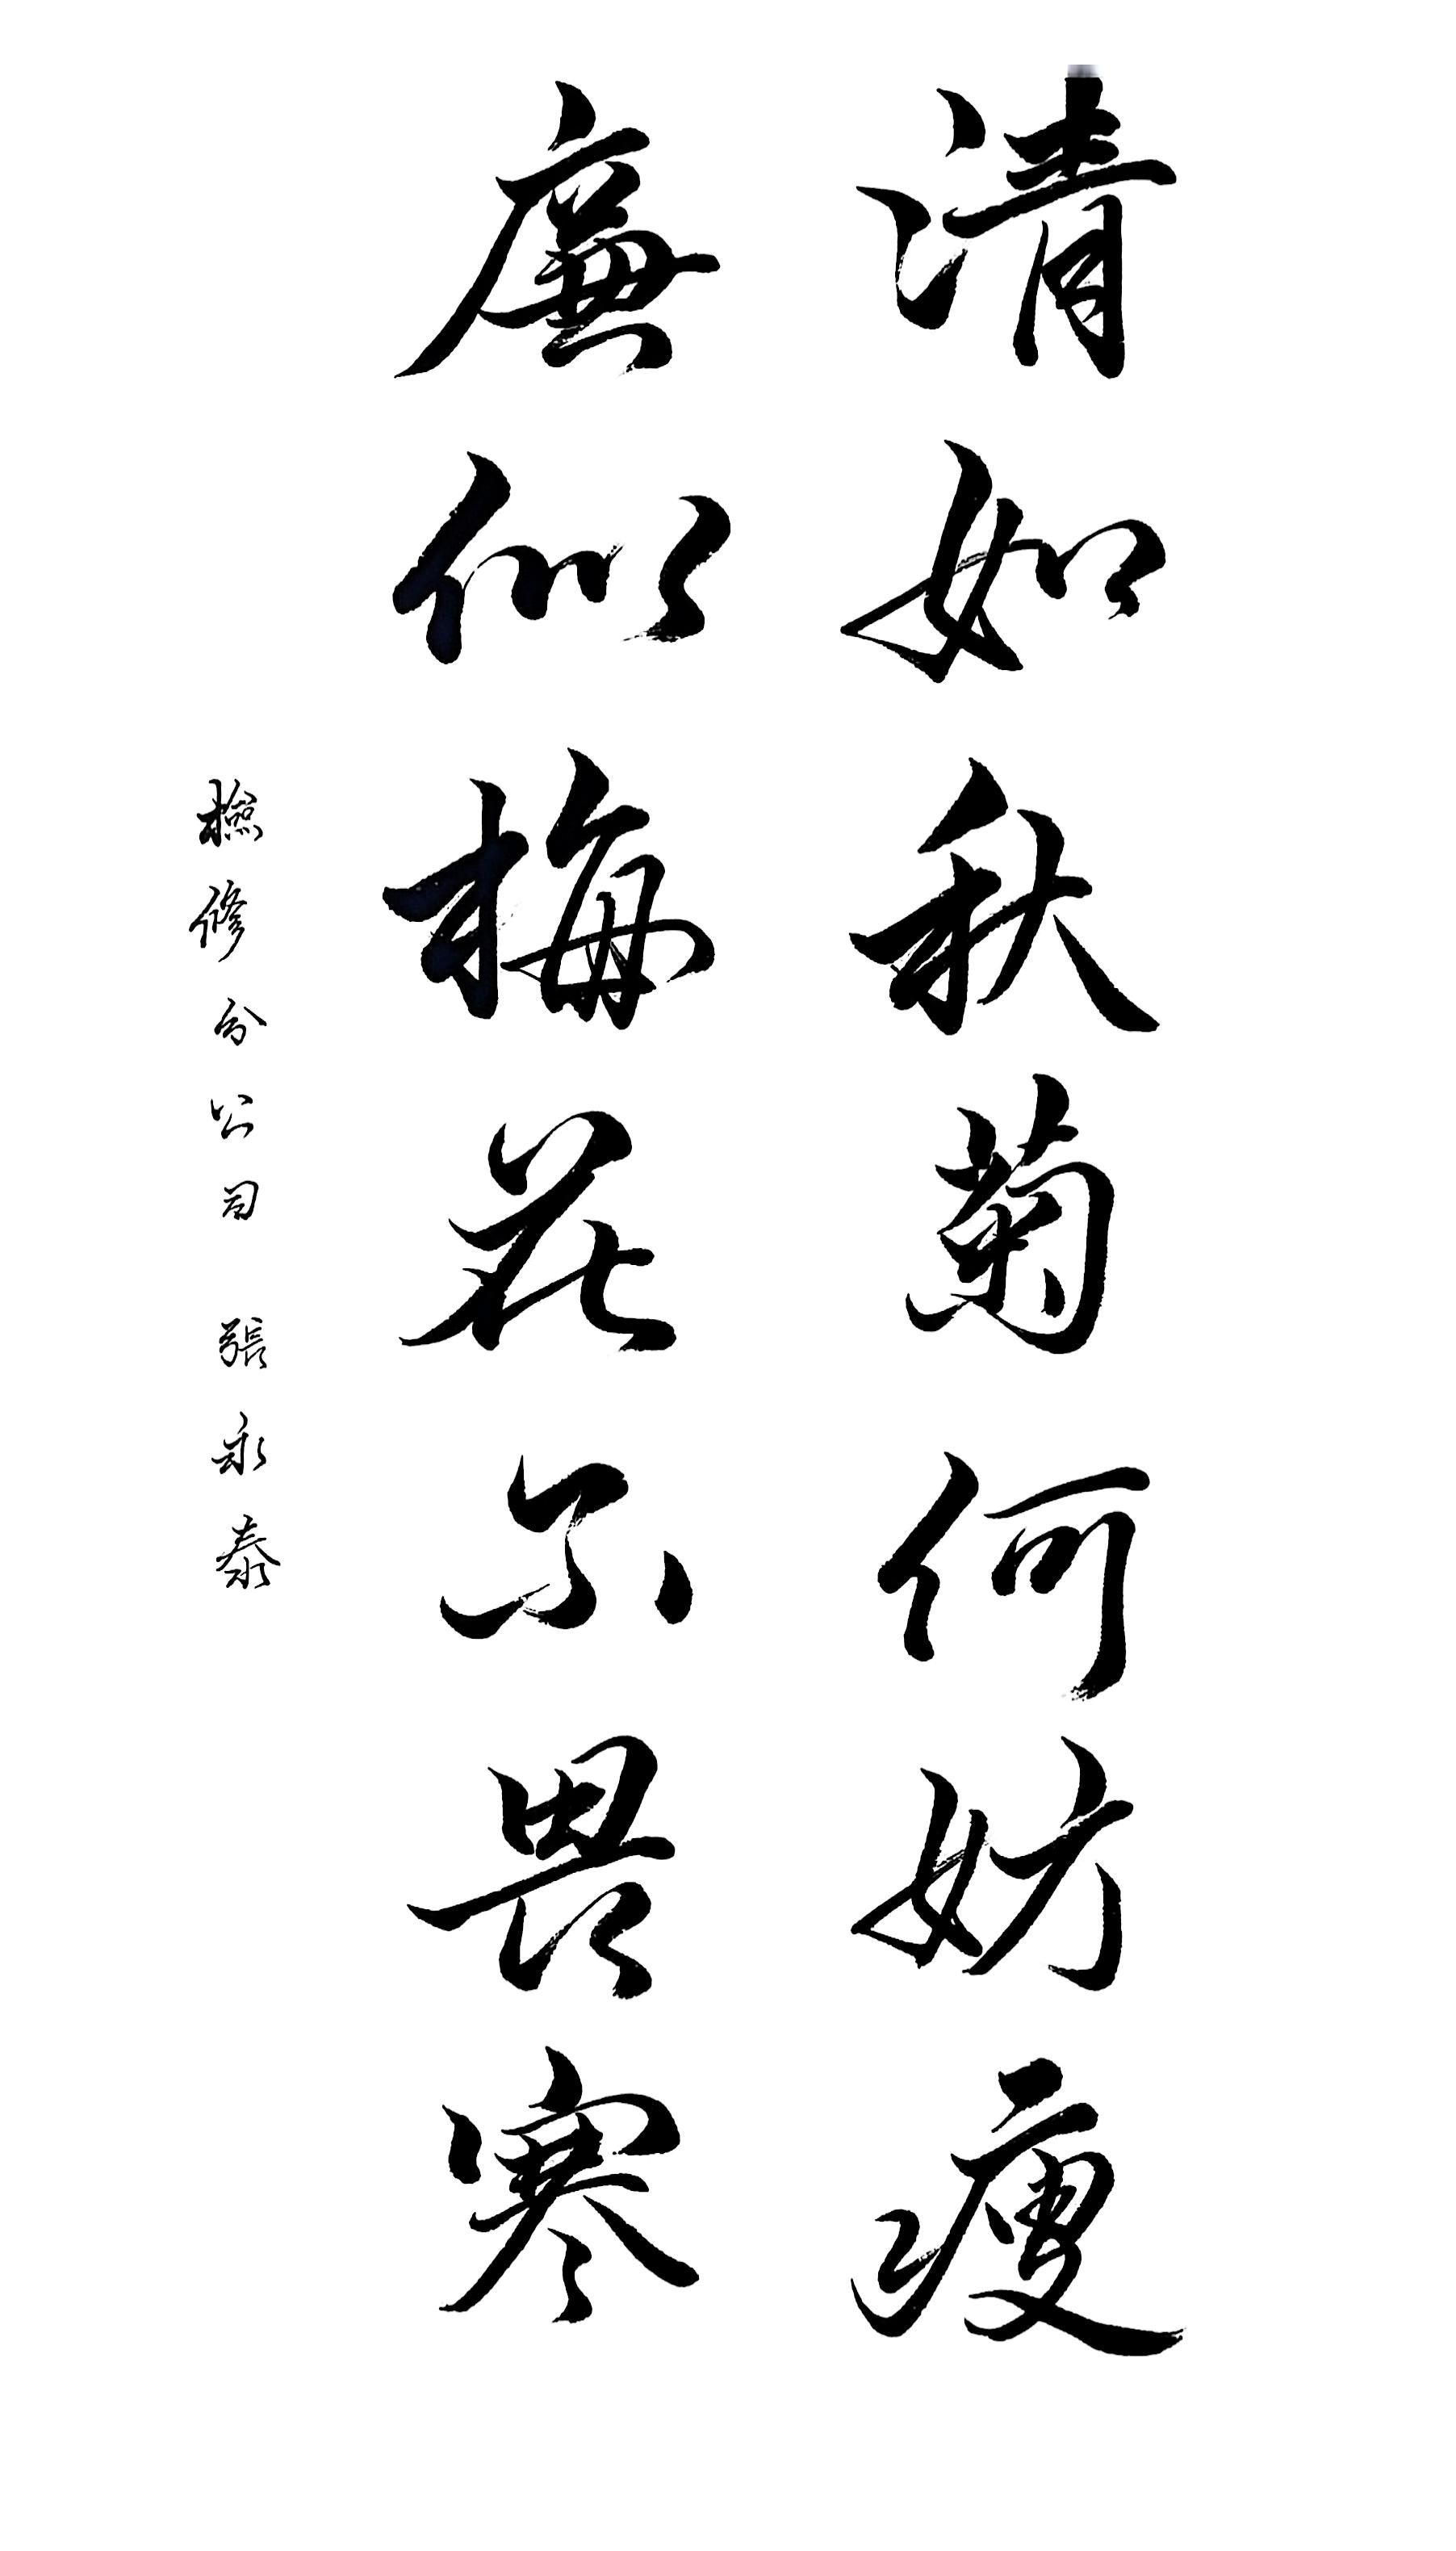 清如秋菊何妨瘦
廉似梅花不畏寒
檢修分公司 張永泰